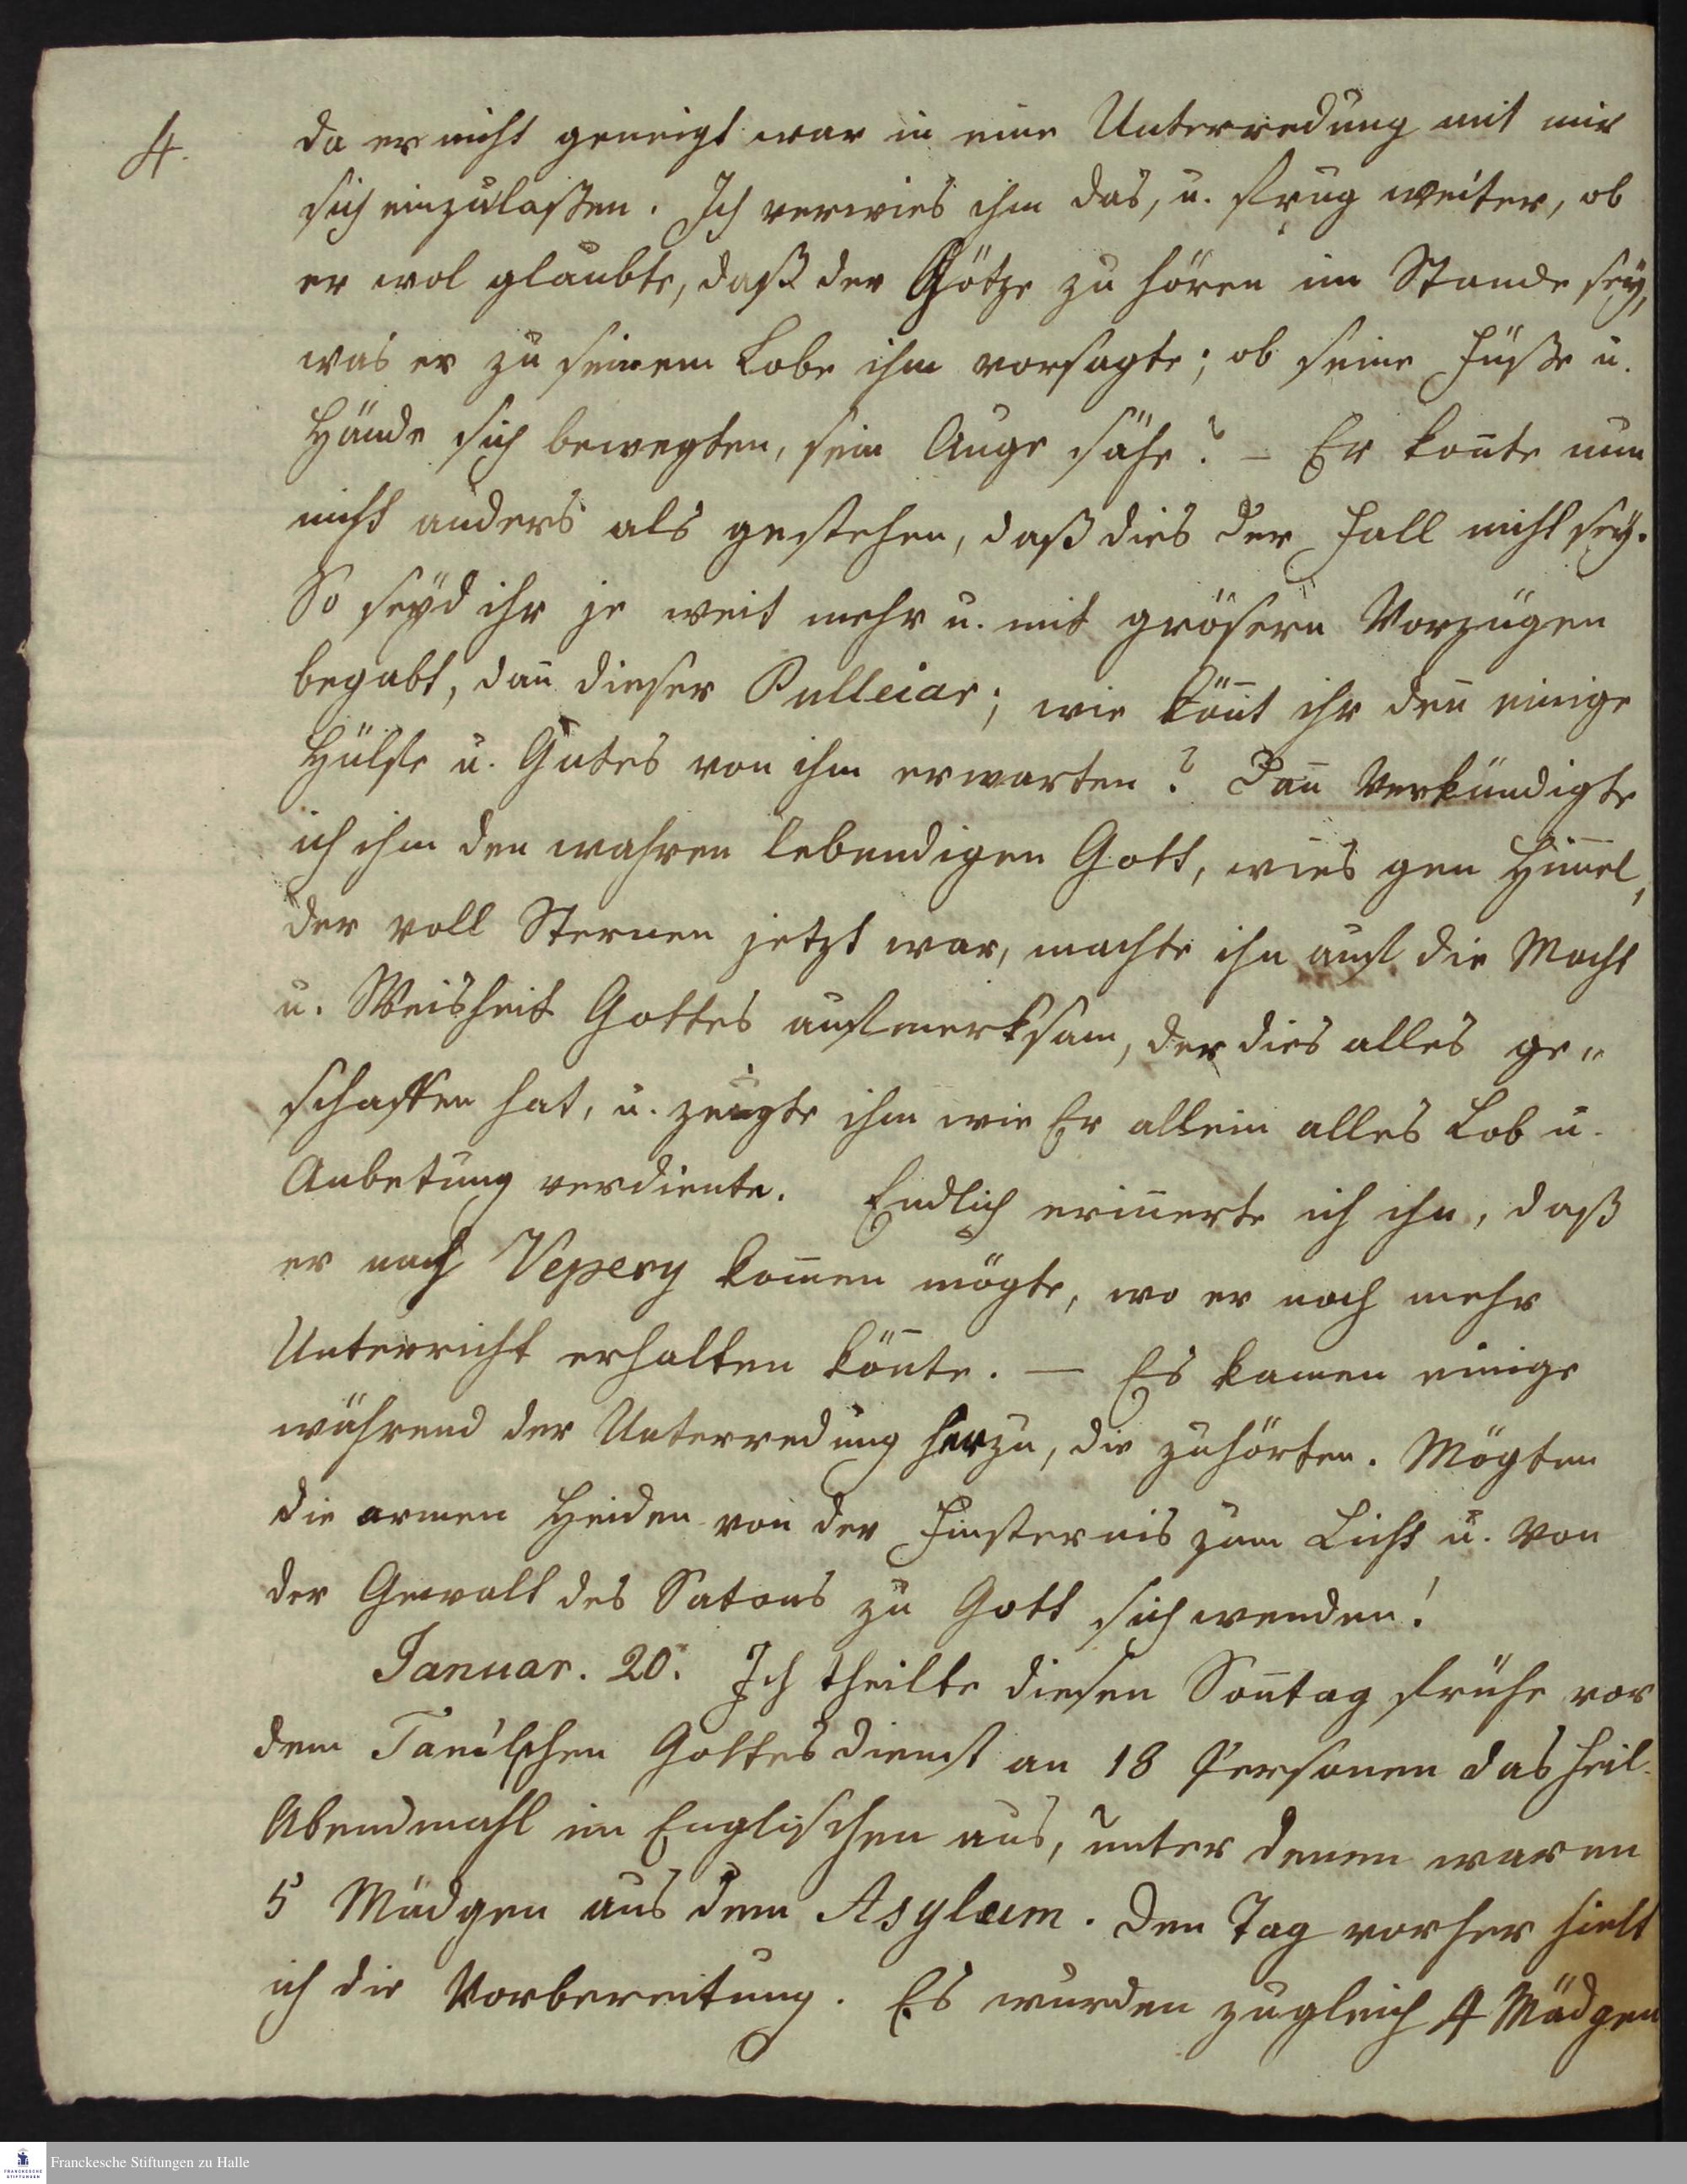 4.
da er nicht geneigt war in eine Unterredung mit mir
sich einzulaßen. Ich verwies ihm das, u. frug weiter, ob
er wol glaubte, daß der Götze zu hören im Stande sey,
was er zu seinem Lobe ihm vorsagte; ob seine Füße u.
Hände sich bewegten, sein Auge sähe? – Er kon̄te nun
nicht anders als gestehen, daß dies der Fall nicht sey.
So seyd ihr je weit mehr u. mit grösern Vorzügen
begabt, dan̄ dieser Pulleiar; wie kön̄t ihr den̄ einige
Hülfe u. Gutes von ihm erwarten? Dan̄ verkündigte
ich ihm den wahren lebendigen Gott, wies gen Him̄el,
der voll Sternen jetzt war, machte ihn auf die Macht
u. Weisheit Gottes aufmerksam, der dies alles ge„
schaffen hat, u. zeugte ihm wie Er allein alles Lob u.
Anbetung verdiente. Endlich erin̄erte ich ihn, daß
er nach Vepery kom̄en mögte, wo er noch mehr
Unterricht erhalten kön̄te. — Es kamen einige
während der Unterredung herzu, die zuhörten. Mögten
die armen Heiden von der Finsternis zum Licht u. von
der Gewalt des Satans zu Gott sich wenden!
Januar. 20. Ich theilte diesen Son̄tag frühe vor
dem Tamilschen Gottesdienst an 18 Personen das heil.
Abendmahl im Englischen aus, unter denen waren
5 Mädgen aus dem Asylum. Den Tag vorher hielt
ich die Vorbereitung. Es wurden zugleich 4 Mädgen
Franckesche Stiftungen zu Halle
FRANCKESCHE
STIFTUNGEN